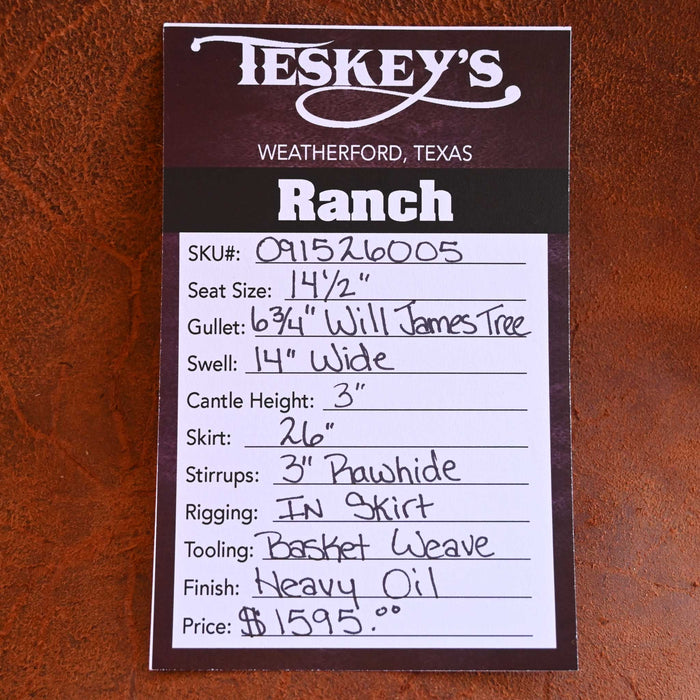 TESKEY'S
WEATHERFORD, TEXAS
Ranch
SKU#: 091526005
Seat Size: 14 1/2"
Gullet: 6 3/4" Will James Tree
Swell: 14" Wide
Cantle Height: 3"
Skirt: 26"
Stirrups: 3" Rawhide
Rigging: IN Skirt
Tooling: Basket Weave
Finish: Heavy Oil
Price: $1595.00